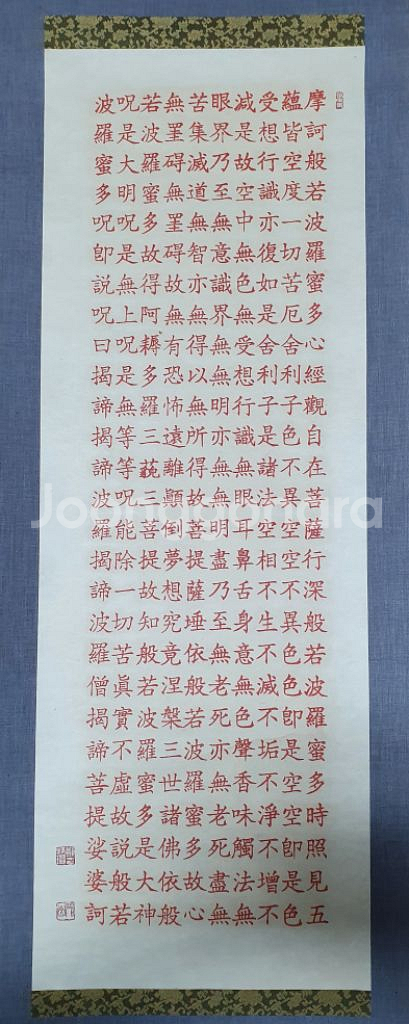 摩訶般若波羅蜜多心經觀自在菩薩行深般若波羅蜜多時照見五
蘊皆空度一切苦厄舍利子色不異空空不異色色即是空空即是色
受想行識亦復如是舍利子是諸法空相不生不滅不垢不淨不增不
減是故空中無色無受想行識無眼耳鼻舌身意無色聲香味觸法無
眼界乃至無意識界無無明亦無無明盡乃至無老死亦無老死盡無
苦集滅道無智亦無得以無所得故菩提薩埵依般若波羅蜜多故心
無罣礙無罣礙故無有恐怖遠離顚倒夢想究竟涅槃三世諸佛依般
若波羅蜜多故得阿耨多羅三藐三菩提故知般若波羅蜜多是大神
呪是大明呪是無上呪是無等等呪能除一切苦眞實不虛故説般若
波羅蜜多呪即説呪曰揭諦揭諦波羅揭諦波羅僧揭諦菩提娑婆訶
Joonggonara